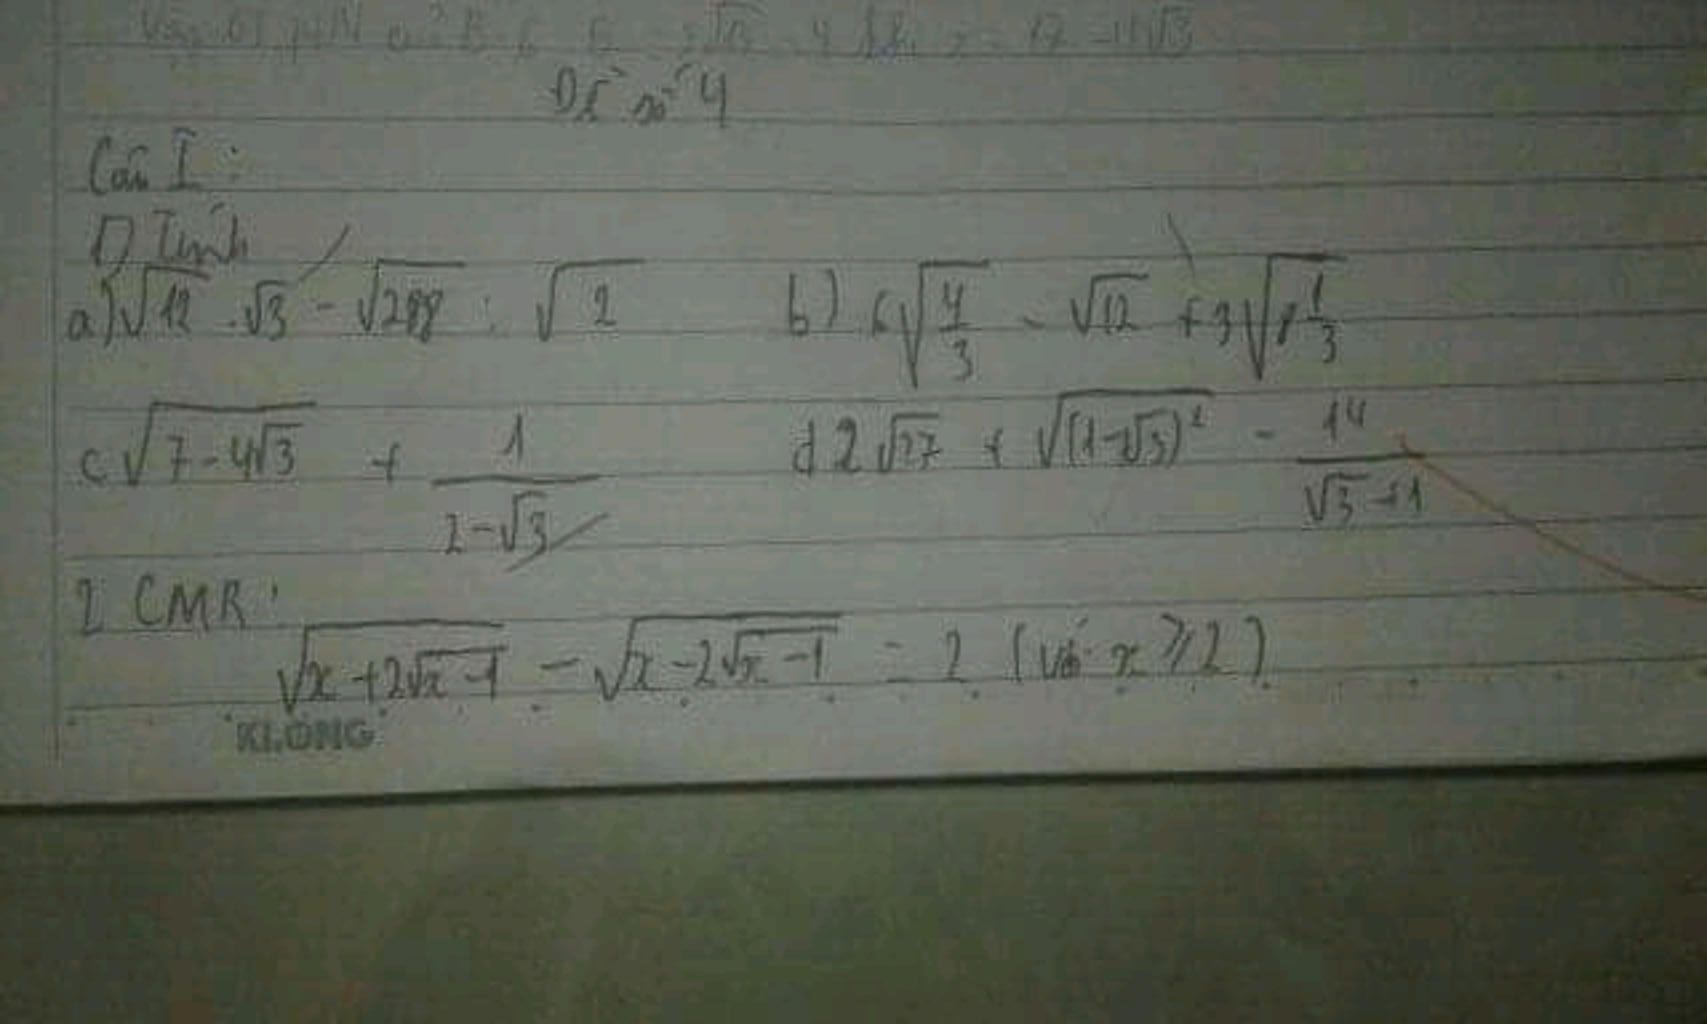 Đề số 4
Câu I:
1) Tính
a) √12 . √3 - √288 : √2 b) 6√(4/3) - √12 + 3√(8 1/3)
c √(7-4√3) + 1/(2-√3) d 2√27 + √((1-2√3)²) - 14/(√3+1)
2 CMR:
√(x+2√(x-1)) - √(x-2√(x-1)) = 2 (với x ⩾ 2)
KLONG